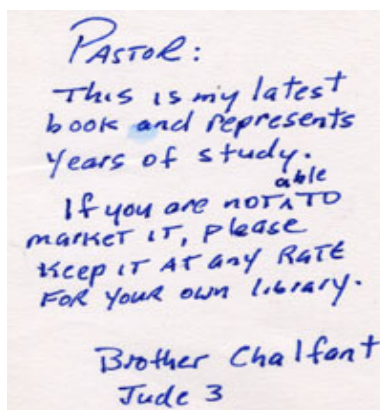 PASTOR:
This is my latest
book and represents
years of study.
able
If you are NOT ^ TO
market IT, please
keep IT AT any RATE
FOR YOUR OWN library.
Brother Chalfant
Jude 3